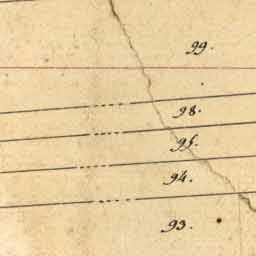 99.
98.
95.
94.
93.